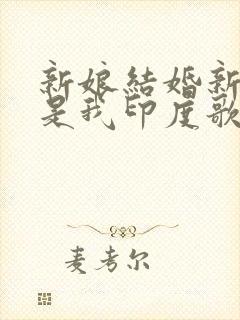 新娘结婚新
是我印度歌
麦考尔